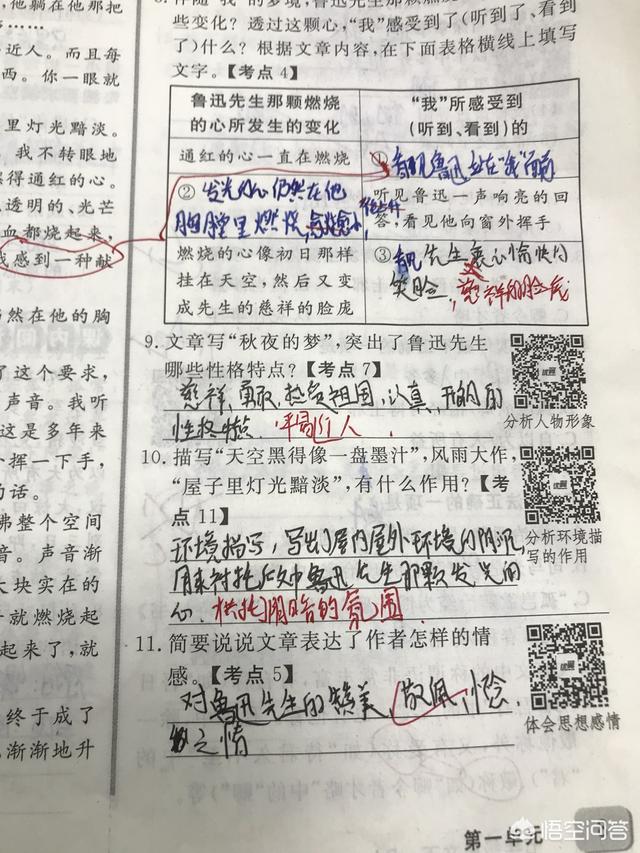 他躺在他那把
近人。而且每
西。你一眼就
里灯光黯淡。
我不转眼地
得通红的心。
透明的、光芒
血都烧起来,
我感到一种献
然在他的胸
了这个要求,
声音。我听
这是多年来
挥一下手,
的话。
整个空间
音。声音渐
大块实在的
就燃烧起
起来了,就
终于成了
渐渐地升
些变化?透过这颗心,“我”感受到了(听到了、看到
了)什么?根据文章内容,在下面表格横线上填写
文字。【考点4】
鲁迅先生那颗燃烧
的心所发生的变化
“我”所感受到
(听到、看到)的
通红的心一直在燃烧
①看见鲁迅站在“我”面前
②发光的心仍然在他
胸膛里燃烧,
听见鲁迅一声响亮的回
答,看见他向窗外挥手
燃烧的心像初日那样
挂在天空,然后又变
成先生的慈祥的脸庞
③看见先生衷心愉快的
笑脸,慈祥的脸庞
9.文章写“秋夜的梦”,突出了鲁迅先生
哪些性格特点?【考点7】
慈祥,勇敢,热爱祖国,认真,
性格特点.平易近人.
分析人物形象
10.描写“天空黑得像一盘墨汁”,风雨大作,
“屋子里灯光黯淡”,有什么作用?【考
点11】
环境描写,写出了屋内屋外环境的阴沉,
用来衬托后文中鲁迅先生那颗发光的
心.烘托阴暗的氛围
分析环境描
写的作用
11.简要说说文章表达了作者怎样的情
感。【考点5】
对鲁迅先生的赞美,敬佩,
之情
体会思想感情
第一单元
悟空问答